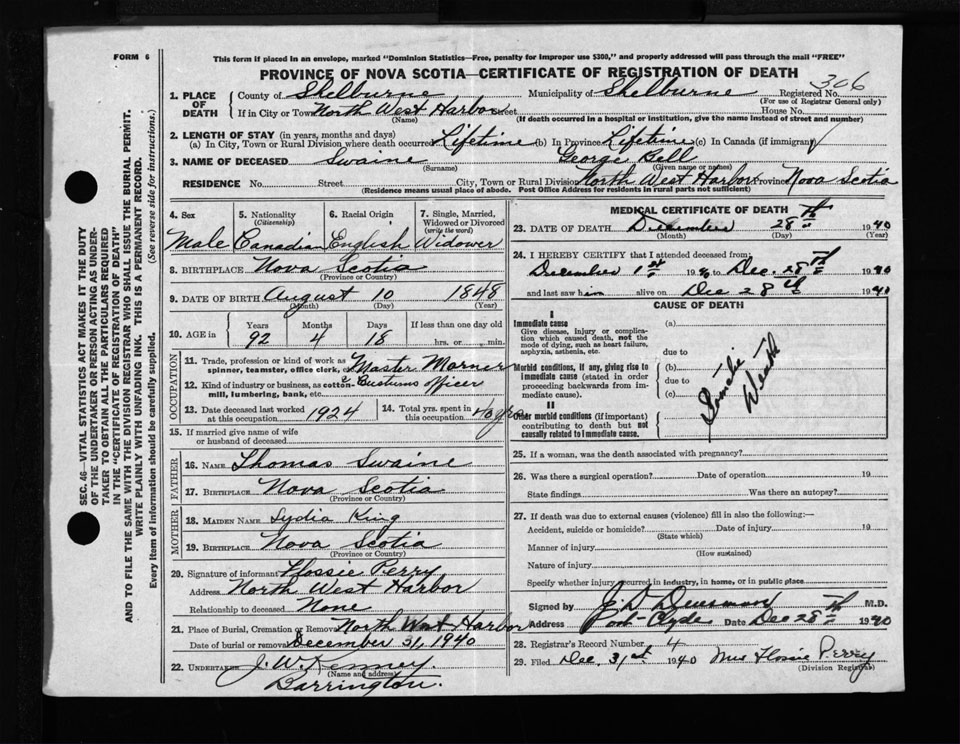 FORM 6
This form if placed in an envelope, marked "Dominion Statistics—Free, penalty for improper use $300," and properly addressed will pass through the mail "FREE"
PROVINCE OF NOVA SCOTIA—CERTIFICATE OF REGISTRATION OF DEATH
306
1. PLACE OF DEATH County of Shelburne Municipality of Shelburne Registered No.
(For use of Registrar General only)
If in City or Town North West Harbor Street House No.
(Name) (If death occurred in a hospital or institution, give the name instead of street and number)
2. LENGTH OF STAY (in years, months and days)
(a) In City, Town or Rural Division where death occurred Lifetime (b) In Province Lifetime (c) In Canada (if immigrant)
3. NAME OF DECEASED Swaine George Bell
(Surname) (Given name or names)
RESIDENCE No. Street City, Town or Rural Division North West Harbor Province Nova Scotia
(Residence means usual place of abode. Post Office Address for residents in rural parts not sufficient)
SEC. 46—VITAL STATISTICS ACT MAKES IT THE DUTY
OF THE UNDERTAKER OR PERSON ACTING AS UNDER-
TAKER TO OBTAIN ALL THE PARTICULARS REQUIRED
IN THE "CERTIFICATE OF REGISTRATION OF DEATH"
AND TO FILE THE SAME WITH THE DIVISION REGISTRAR WHO SHALL ISSUE THE BURIAL PERMIT.
WRITE PLAINLY WITH UNFADING INK. THIS IS A PERMANENT RECORD.
Every item of information should be carefully supplied. (See reverse side for instructions.)
4. Sex 5. Nationality (Citizenship) 6. Racial Origin 7. Single, Married, Widowed or Divorced (write the word)
Male Canadian English Widower
8. BIRTHPLACE Nova Scotia
(Province or Country)
9. DATE OF BIRTH August 10 1848
(Month) (Day) (Year)
10. AGE in Years Months Days If less than one day old
92 4 18 hrs. or min.
OCCUPATION
11. Trade, profession or kind of work as spinner, teamster, office clerk, etc. Master Marner
12. Kind of industry or business, as cotton mill, lumbering, bank, etc. & Customs officer
13. Date deceased last worked at this occupation 1924 14. Total yrs. spent in this occupation
15. If married give name of wife or husband of deceased
FATHER
16. NAME Thomas Swaine
17. BIRTHPLACE Nova Scotia
(Province or Country)
MOTHER
18. MAIDEN NAME Lydia King
19. BIRTHPLACE Nova Scotia
(Province or Country)
20. Signature of informant Flossie Perry
Address North West Harbor
Relationship to deceased None
21. Place of Burial, Cremation or Removal North West Harbor
Date of burial or removal December 31, 1940
22. UNDERTAKER J. W. Kenney.
(Name and address)
Barrington.
MEDICAL CERTIFICATE OF DEATH
23. DATE OF DEATH December 28th 1940
(Month) (Day) (Year)
24. I HEREBY CERTIFY that I attended deceased from
December 1st 1940 to Dec. 28th 1940
and last saw him alive on Dec 28th 1940
CAUSE OF DEATH
I
Immediate cause (a)
Give disease, injury or complication which caused death, not the mode of dying, such as heart failure, asphyxia, asthenia, etc.
due to
Morbid conditions, if any, giving rise to immediate cause (stated in order proceeding backwards from immediate cause).
(b)
due to
(c)
Senile Death
II
Other morbid conditions (if important) contributing to death but not causally related to immediate cause.
25. If a woman, was the death associated with pregnancy?
26. Was there a surgical operation? Date of operation 19
State findings Was there an autopsy?
27. If death was due to external causes (violence) fill in also the following:—
Accident, suicide or homicide? Date of injury 19
(State which)
Manner of injury
(How sustained)
Nature of injury
Specify whether injury occurred in industry, in home, or in public place
Signed by M.D.
Address Port Clyde Date Dec 28th 1940
28. Registrar's Record Number 4
29. Filed Dec. 31st 1940 Mrs Flossie Perry
(Division Registrar)